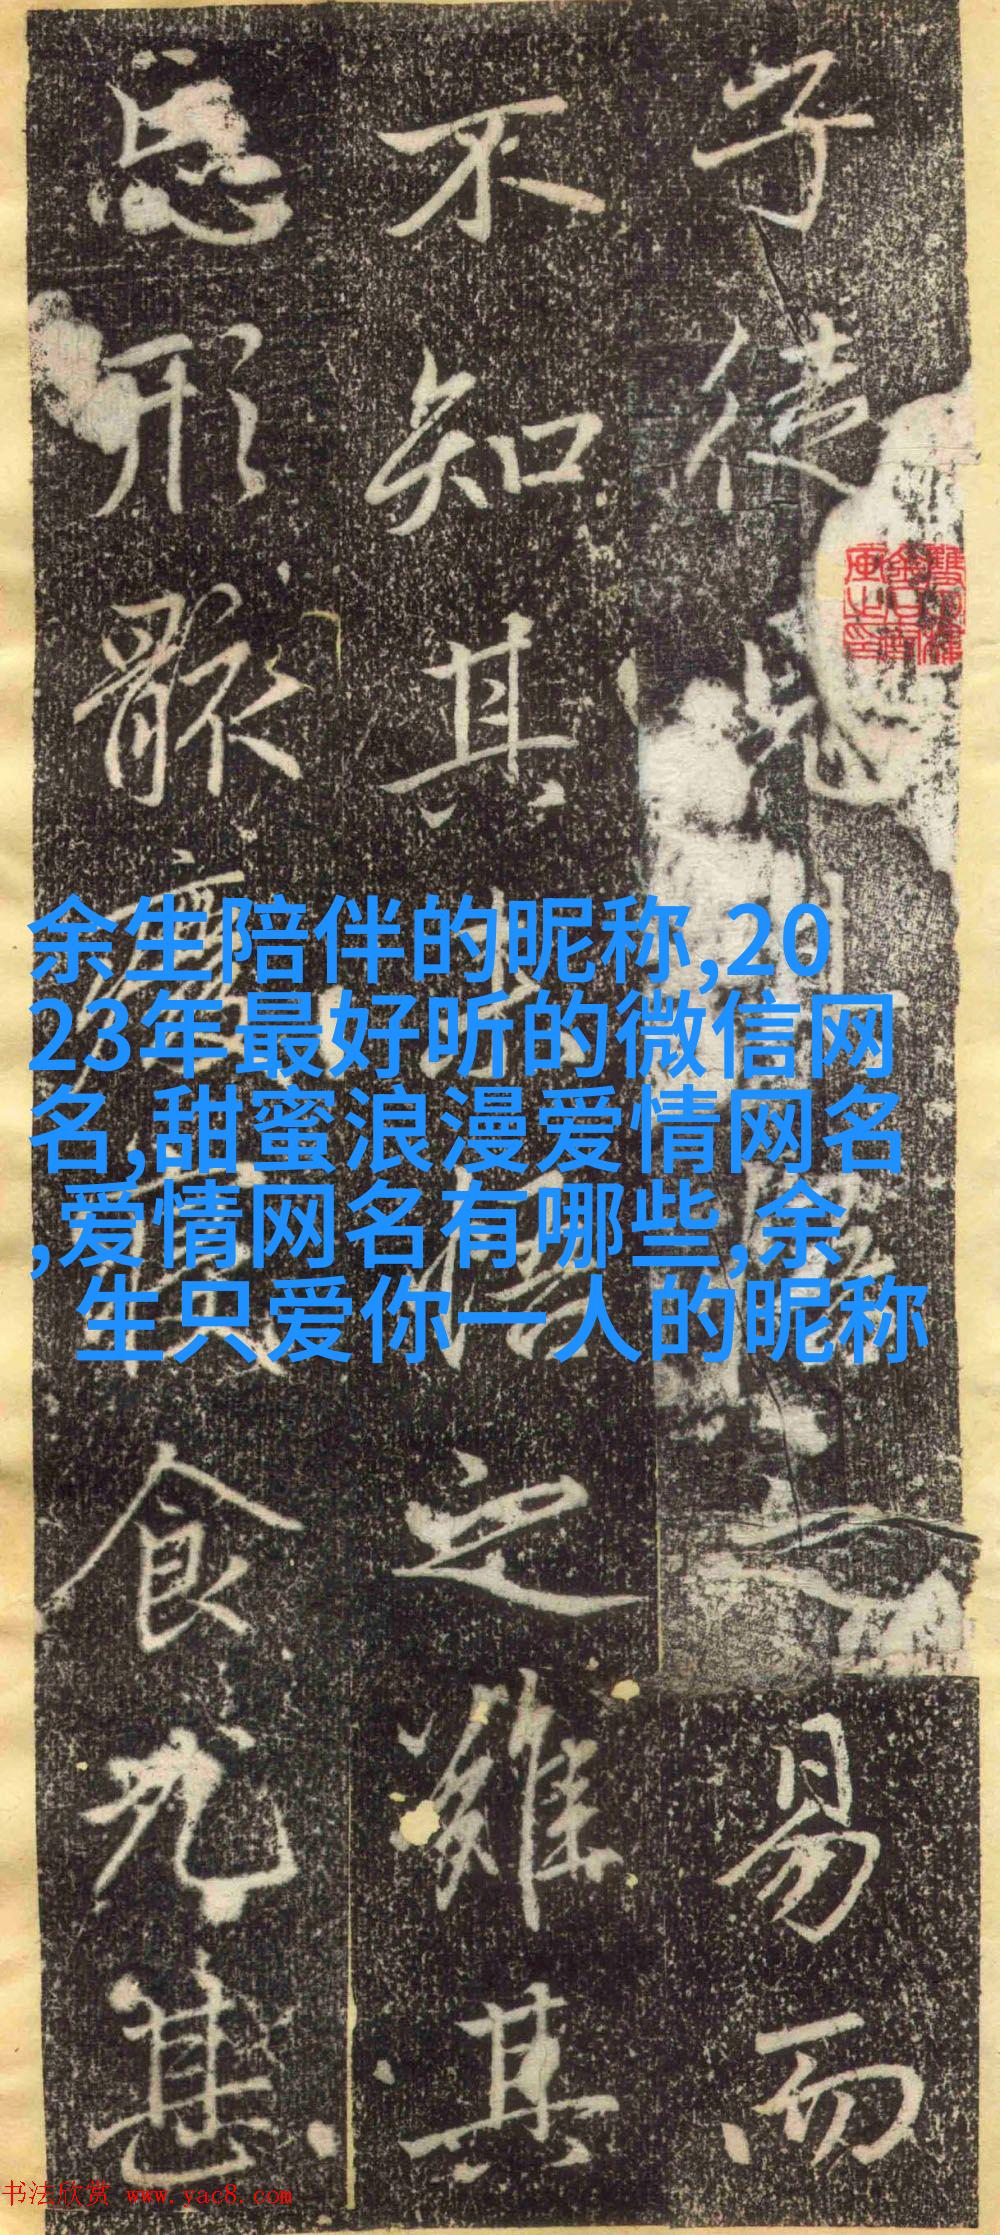 子徒見之易而
不知其之難其
忘形骸廢食尤甚
余生陪伴的昵称,20
23年最好听的微信网
名,甜蜜浪漫爱情网名
,爱情网名有哪些,余
生只爱你一人的昵称
书法欣赏 www.yac8.com